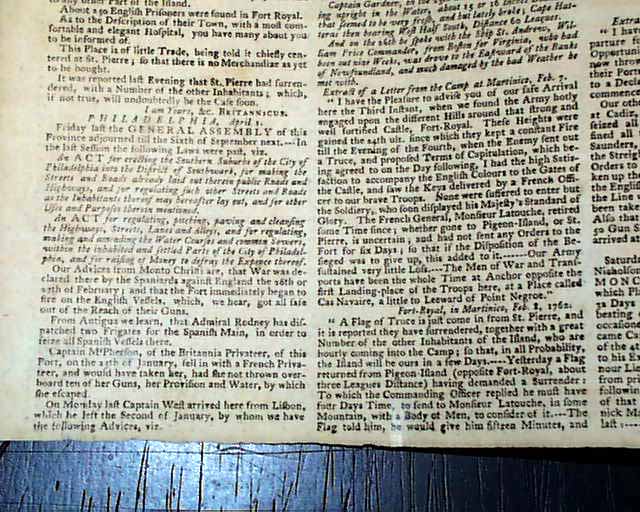 to any other Part of the Island.
About 250 English Prisoners were found in Fort Royal.
As to the Description of their Town, with a most com-
fortable and elegant Hospital, you have many about you
to be informed of.
This Place is of little Trade, being told it chiefly cen-
tered at St. Pierre; so that there is no Merchandize as yet
to be bought.
It was reported last Evening that St. Pierre had surren-
dered, with a Number of the other Inhabitants; which,
if not true, will undoubtedly be the Case soon.
I am Yours, &c. BRITANNICUS.
PHILADELPHIA, April 1.
Friday last the GENERAL ASSEMBLY of this
Province adjourned till the Sixth of September next.---In
the last Session the following Laws were past, viz.
An ACT for erecting the Southern Suburbs of the City of
Philadelphia into the District of Southwark, for making the
Streets and Roads already laid out therein public Roads and
Highways, and for regulating such other Streets and Roads
as the Inhabitants thereof may hereafter lay out, and for other
Uses and Purposes therein mentioned.
An ACT for regulating, pitching, paving and cleansing
the Highways, Streets, Lanes and Alleys, and for regulating,
making and amending the Water Courses and common Sewers,
within the inhabited and settled Parts of the City of Philadel-
phia, and for raising of Money to defray the Expence thereof.
Our Advices from Monto Christi are, that War was de-
clared there by the Spaniards against England the 26th or
27th of February; and that the Fort immediately began to
fire on the English Vessels, which, we hear, got all safe
out of the Reach of their Guns.
From Antigua we learn, that Admiral Rodney has dis-
patched two Frigates for the Spanish Main, in order to
seize all Spanish Vessels there.
Captain McPherson, of the Britannia Privateer, of this
Port, on the 25th of January, fell in with a French Priva-
teer, and would have taken her, had she not thrown over-
board ten of her Guns, her Provision and Water, by which
she escaped.
On Monday last Captain West arrived here from Lisbon,
which he left the Second of January, by whom we have
the following Advices, viz.
Captain Gardner,
ing upright in the Water, about 15 or 16 Inches
that seemed to be very fresh, and but lately broke; Cape Hat-
teras then bearing West Half South, Distance 60 Leagues.
And on the 26th he spoke with the Ship St. Andrews, Wil-
liam Price Commander, from Boston for Virginia, who had
been out nine Weeks, was drove to the Eastward of the Banks
of Newfoundland, and much damaged by the bad Weather he
met with.
Extract of a Letter from the Camp at Martinico, Feb. 7.
"I have the Pleasure to advise you of our safe Arrival
here the Third Instant, when we found the Army hotly
engaged on the different Hills around that strong and
well fortified Castle, Fort-Royal. These Heights were
gained the 24th ult. since which they kept a constant Fire
till the Evening of the Fourth, when the Enemy beat out
a Truce, and proposed Terms of Capitulation, which be-
ing agreed to on the Day following, I had the high Satis-
faction to accompany the English Colours to the Gates of
the Castle, and saw the Keys delivered by a French Offi-
cer to our brave Troops. None were suffered to enter but
the Soldiery, who soon displayed his Majesty's Standard of
Glory. The French General, Monsieur Latouche, retired
some Time since; whether gone to Pigeon-Island, or St.
Pierre, is uncertain; and had not sent any Orders to the
Fort for six Days; so that if the Disposition of the Be-
sieged was to give up, this added to it.------Our Army
sustained very little Loss.---The Men of War and Trans-
ports have been the whole Time at Anchor opposite the
first Landing-place of the Troops here, at a Place called
Cas Navaire, a little to Leeward of Point Negroe."
Fort-Royal, in Martinico, Feb. 8, 1762.
"A Flag of Truce is just come in from St. Pierre, and
it is reported they have surrendered, together with a great
Number of the other Inhabitants of the Island, who are
hourly coming into the Camp; so that, in all Probability,
the Island will be ours in a few Days.---Yesterday a Flag
returned from Pigeon-Island (opposite Fort-Royal, about
three Leagues Distance) having demanded a Surrender:
To which the Commanding Officer replied he must have
four Days Time, to send to Monsieur Latouche, in some
Mountain, with a Body of Men, to consider of it.---The
Flag told him, he would give him fifteen Minutes, and